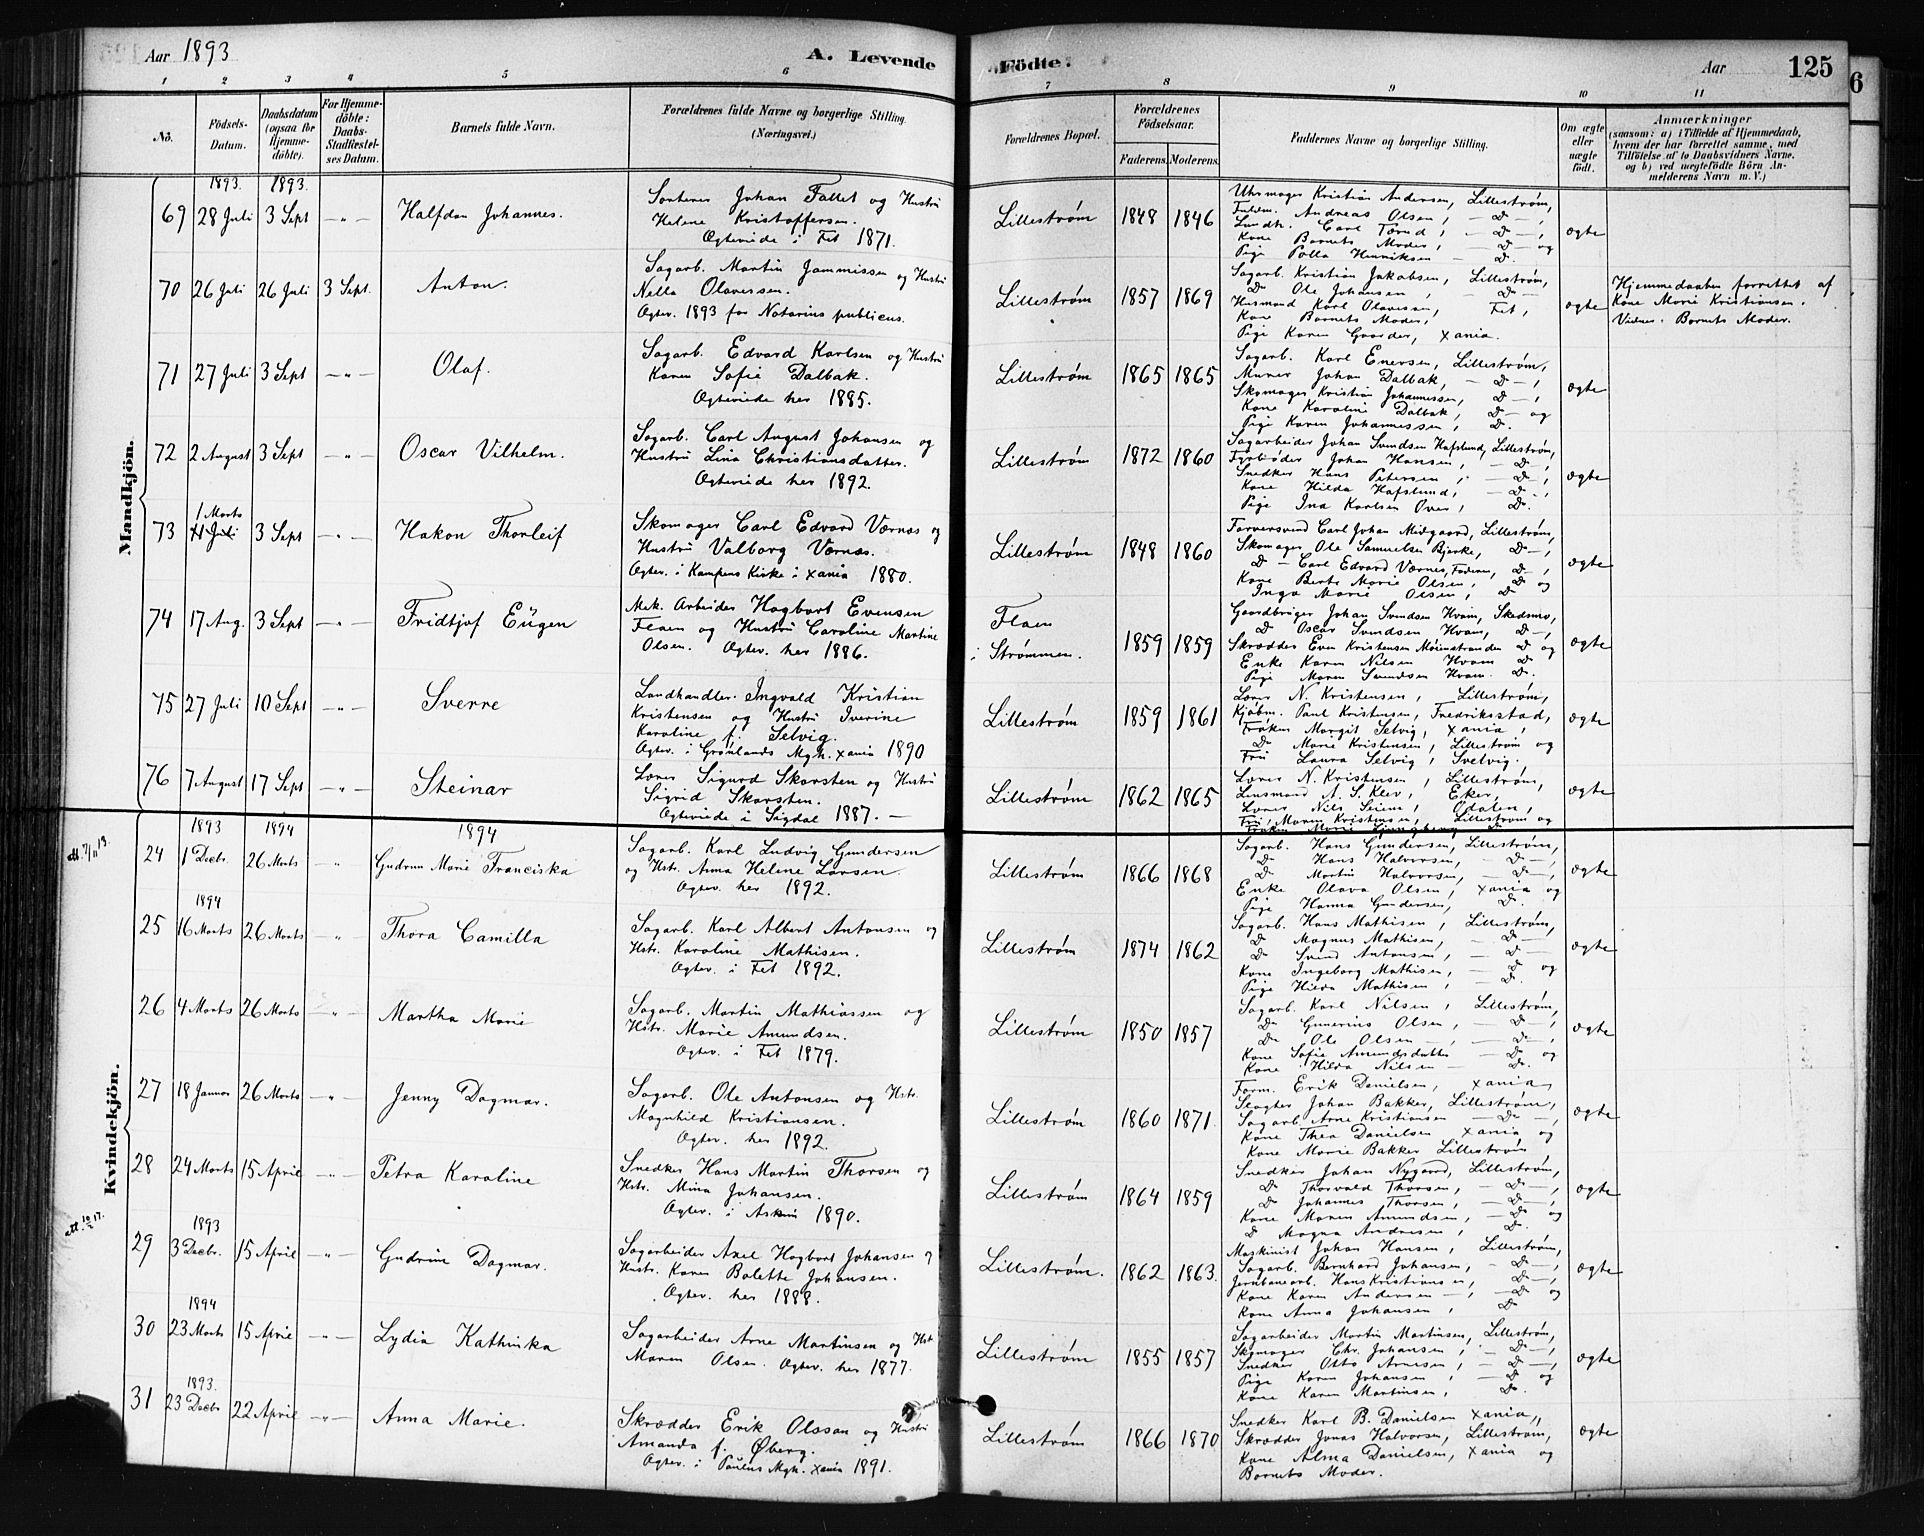 Aar 1893
A. Levende
Födte.
Aar
125
6
1
2
3
4
5
6
7
8
9
10
11
No.
Födsels-
Datum.
Daabsdatum
(ogsaa for
Hjemme-
döbte).
For Hjemme-
döbte:
Daabs-
Stadfæstel-
ses Datum.
Barnets fulde Navn.
Forældrenes fulde Navne og borgerlige Stilling.
(Næringsvei.)
Forældrenes Bopæl.
Forældrenes
Födselsaar.
Faderens.
Moderens.
Faddernes Navne og borgerlige Stilling.
Om ægte
eller
uægte
födt.
Anmærkninger
(saasom: a) i Tilfælde af Hjemmedaab,
hvem der har forrettet samme, med
Tilföielse af to Daabsvidners Navne,
og b) ved uægtefödte Börn An-
melderens Navn m. V.)
Mandkjön.
1893. 1893.
69 28 Juli 3 Sept -"- Halfdan Johannes.
Sorterer Johan Fallet og Hustru
Helene Kristoffersen.
Ægteviede i Fet 1871.
Lillestrøm 1848 1846
Uhrmager Kristian Andersen, Lillestrøm,
Andreas Olsen, - D -,
Carl Tærud, - D -,
Kone Barnets Moder, - D - og
Pige Polla Henriksen - D.
ægte
70 26 Juli 26 Juli 3 Sept. Anton.
Sagarb. Martin Jammissen og Hustru
Nella Olaversen.
Ægtev. 1893 for Notarius publicus.
Lillestrøm 1857 1869
Sagarb. Kristian Jakobsen, Lillestrøm,
Do Ole Johansen, - D -
Husmand Karl Olavesen, Fet,
Kone Barnets Moder,
Pige Karen Gaarder, Xania.
ægte
Hjemmedaaben forrettet af
Kone Marie Kristiansen.
Vidner. Barnets Moder.
71 27 Juli 3 Sept -"- Olaf.
Sagarb. Edvard Karlsen og Hustru
Karen Sofie Dalbak.
Ægteviede her 1885.
Lillestrøm 1865 1865
Sagarb. Karl Enersen, Lillestrøm,
Murer Johan Dalbak, - D -,
Skomager Kristian Johannessen, D -,
Kone Karoline Dalbak, D - og
Pige Karen Johannessen, D.
ægte
72 2 August 3 Sept -"- Oscar Vilhelm.
Sagarb. Carl August Johansen og
Hustru Lina Christiansdatter.
Ægteviede her 1892.
Lillestrøm 1872 1860
Sagarbeider Johan Svendsen Hafslund, Lillestrøm,
Fyrbøder Johan Hansen, - D -,
Snedker Hans Petersen, - D -,
Kone Hilda Hafslund, - D -,
Pige Ina Karlsen D.
ægte
73 1 Marts 3 Sept -"- Hakon Thorleif
Skomager Carl Edvard Værnæs og
Hustru Valborg Værnæs.
Ægtev. i Kampens Kirke i Xania 1880.
Lillestrøm 1848 1860
Farversvend Carl Johan Midgaard, Lillestrøm,
Skomager Ole Samuelsen Bjerke, D -,
D - Carl Edvard Værnes, Faderen, D -,
Kone Berte Marie Olsen, D og
Inga Marie Olsen, D
ægte
74 17 Aug. 3 Sept -"- Fridtjof Eügen
Mek. Arbeider Hagbart Evensen
Flaen og Hustru Caroline Martine
Olsen. Ægtev. her 1886.
Flaen
i Strømmen.
1859 1859
Gaardbruger Johan Svendsen Hvam, Skedsmo,
D Oscar Svendsen Hvam, D -,
Skrædder Even Kristensen D og
Enke Karen Nilsen Hvam D
Pige Maren Svendsen Hvam. D.
ægte
75 27 Juli 10 Sept -"- Sverre
Landhandler. Ingvald Kristian
Kristensen og Hustru Iverine
Karoline f. Selvig.
Ægtev. i Grønlands Mgh. Xania 1890
Lillestrøm 1859 1861
Lærer N. Kristensen, Lillestrøm,
Kjøbm. Paul Kristensen, Fredriksstad,
Frøken Margit Selvig, Xania,
Do Marie Kristensen, Lillestrøm og
Fru Laura Selvig, Svelvig.
ægte
76 7 August 17 Sept -"- Steinar
Lærer Sigurd Skarsten og Hustru
Sigrid Skarsten.
Ægteviede i Sigdal 1887. -
Lillestrøm 1862 1865
Lærer N. Kristensen, Lillestrøm,
Lensmand A. S. Klev, Eker,
Lærer Nils Seiem, Odalen,
Fru Maren Kristensen, Lillestrøm og
Frøken Marie
ægte
Kvindekjön.
1893 1894 1894
24 1 Decbr. 26 Marts -"- Gudrun Marie Franciska
Sagarb. Karl Ludvig Gundersen
og Hstr. Anna Helene Larsen.
Ægtev. her 1892.
Lillestrøm 1866 1868
Sagarb. Hans Gundersen, Lillestrøm,
Do Hans Halvorsen, - D -,
Do Martin Halvorsen, - D -,
Enke Olava Olsen, Xania og
Pige Hanna Gundersen, D.
ægte
1894
25 16 Marts 26 Marts -"- Thora Camilla
Sagarb. Karl Albert Antonsen og
Hstr. Karoline Mathisen.
Ægtev. i Fet 1892.
Lillestrøm 1874 1862
Sagarb. Hans Mathisen, Lillestrøm,
Do Magnus Mathisen, - D -
Do Svend Antonsen, - D -
Kone Ingeborg Mathisen, - D og
Pige Hilda Mathisen, - D.
ægte
26 4 Marts 26 Marts -"- Martha Marie
Sagarb. Martin Mathiassen og
Hstr. Marie Amundsen.
Ægtev. i Fet 1879.
Lillestrøm 1850 1857
Sagarb. Karl Nilsen, Lillestrøm,
Do Gunerius Olsen, - D -,
Do Ole Olsen -, - D -,
Kone Sofie Amundsdatter - D. og
Kone Hilda Nilsen - D.
ægte
27 18 Januar 26 Marts -"- Jenny Dagmar.
Sagarb. Ole Antonsen og Hstr.
Magnhild Kristiansen.
Ægtev. her 1892.
Lillestrøm 1860 1871.
Form. Erik Danielsen, Xania,
Slagter Johan Bakker, Lillestrøm,
Sagarb. Arne Kristiansen - D -,
Kone Thea Danielsen Xania og
Kone Marie Bakker Lillestrøm
ægte
28 24 Marts 15 April -"- Petra Karoline
Snedker Hans Martin Thorsen og
Hstr. Mina Johansen.
Ægtev. i Askim 1890.
Lillestrøm 1864 1859
Snedker Johan Nygaard, Lillestrøm,
Do Thorvald Thorsen, - D -,
Do Johannes Thorsen, - D -,
Kone Maren Amundsen, - D og
D Magna Andersen, D.
ægte
1893
29 3 Decbr. 15 April -"- Gudrun Dagmar.
Sagarbeider Axel Hagbart Johansen og
Hustr. Karen Bolette Johansen.
Ægtev. her 1888.
Lillestrøm. 1862 1863.
Maskinist Johan Hansen, Lillestrøm,
Sagarb. Bernhard Johansen, - D -,
Jernbanearb. Hans Kristiansen, - D -,
Kone Karen Andersen -, - D og
Kone Anna Johansen, D
ægte
1894
30 23 Marts 15 April -"- Lydia Kathinka
Sagarbeider Arne Martinsen og Hstr.
Maren Olsen. Ægtev. her 1877.
Lillestrøm 1855 1857
Sagarbeider Martin Martinsen, Lillestrøm,
Skomager Chr. Johansen, - D -,
Snedker Otto Arnesen, - D -,
Pige Karen Johansen, - D og
Kone Karen Martinsen, D.
ægte
1893.
31 23 Decbr 22 April -"- Anna Marie.
Skrædder Erik Olsson og Hustru
Amanda f. Øberg.
Ægtev. i Paulus Mgh. Xania 1891.
Lillestrøm 1866 1870
Snedker Karl B. Danielsen Xania,
Skrædder Jonas Halvorsen, Lillestrøm,
Kone Alma Danielsen, Xania og
Barnets Moder.
ægte